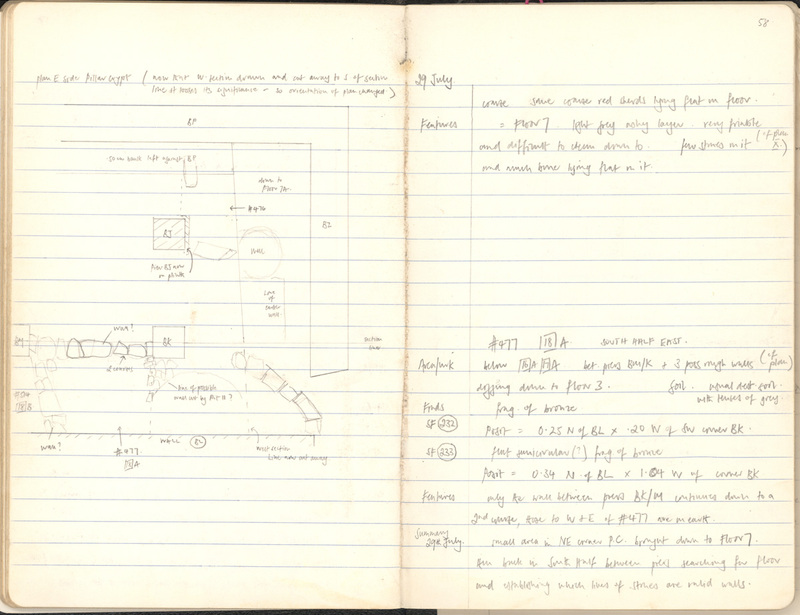 plan E side Pillar Crypt (now that W. section drawn and cut away to S of section
line it loses its significance - so orientation of plan changed)
BP
some built left against BP
down to
Floor 7A.
← #476
BJ
BZ
Pier BJ now
on plinth
Well
Line
of
wall
section
line
wall?
BM
BK
wall?
#477.
18 A
BL
line now cut away
58
29 July
coarse some coarse red sherds lying flat on floor.
Features = Floor 7 light grey ashy layer. very friable
and difficult to clean down to. few stones on it (cf plan
and much bone lying flat on it.
#477 18 A SOUTH HALF EAST.
Area/unit below A A bet. piers BM/K + 3 poss rough walls (cf
digging down to Floor 3. Soil. usual dark soil plan)
with tinges of grey.
Finds frag of bronze
SF 232 Posit = 0.25 N of BL x .20 W of SW corner BK.
SF 233 flat semicircular (?) frag of bronze
Posit = 0.34 N of BL x 1.04 W of corner BK
Features only the wall between piers BK/M continues down to a
2nd course, those to W + E of #477 are on earth.
Summary
29th July. small area in NE corner P.C. brought down to Floor 7.
Are back in South Half between piers searching for floor
and establishing which lines of stones are valid walls.